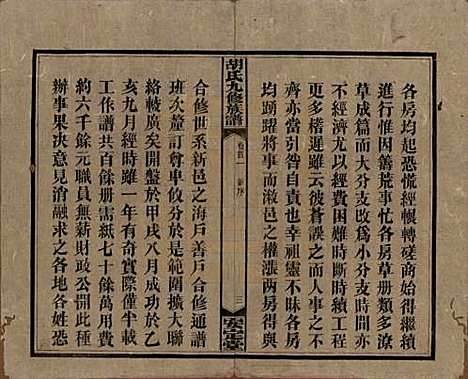 各房均起恐慌經輾轉磋商始得繼續
進行惟因善荒事忙各房草册類多潦
草成篇而大分支改爲小分支時間亦
不經濟尤以困難時斷時續工程
更多稽遲雖云彼蒼誤之而主事
齊亦當引咎自責也幸祖靈不昧各房
均踴躍將事而溆邑之權漲兩房得與
胡氏九修族譜
卷首一
新序
三
安定堂
合修世系新邑之海戶善戶合修通譜
班次釐訂尊卑攸分於是範圍擴大聯
絡較廣矣開盤於甲戌八月成功於乙
亥九月經時雖一年有奇實際僅半載
工作譜共百餘册需紙七十餘萬用費
約六千餘元職員無薪財政公開此種
辦事果決意見消融求之各地各姓恐